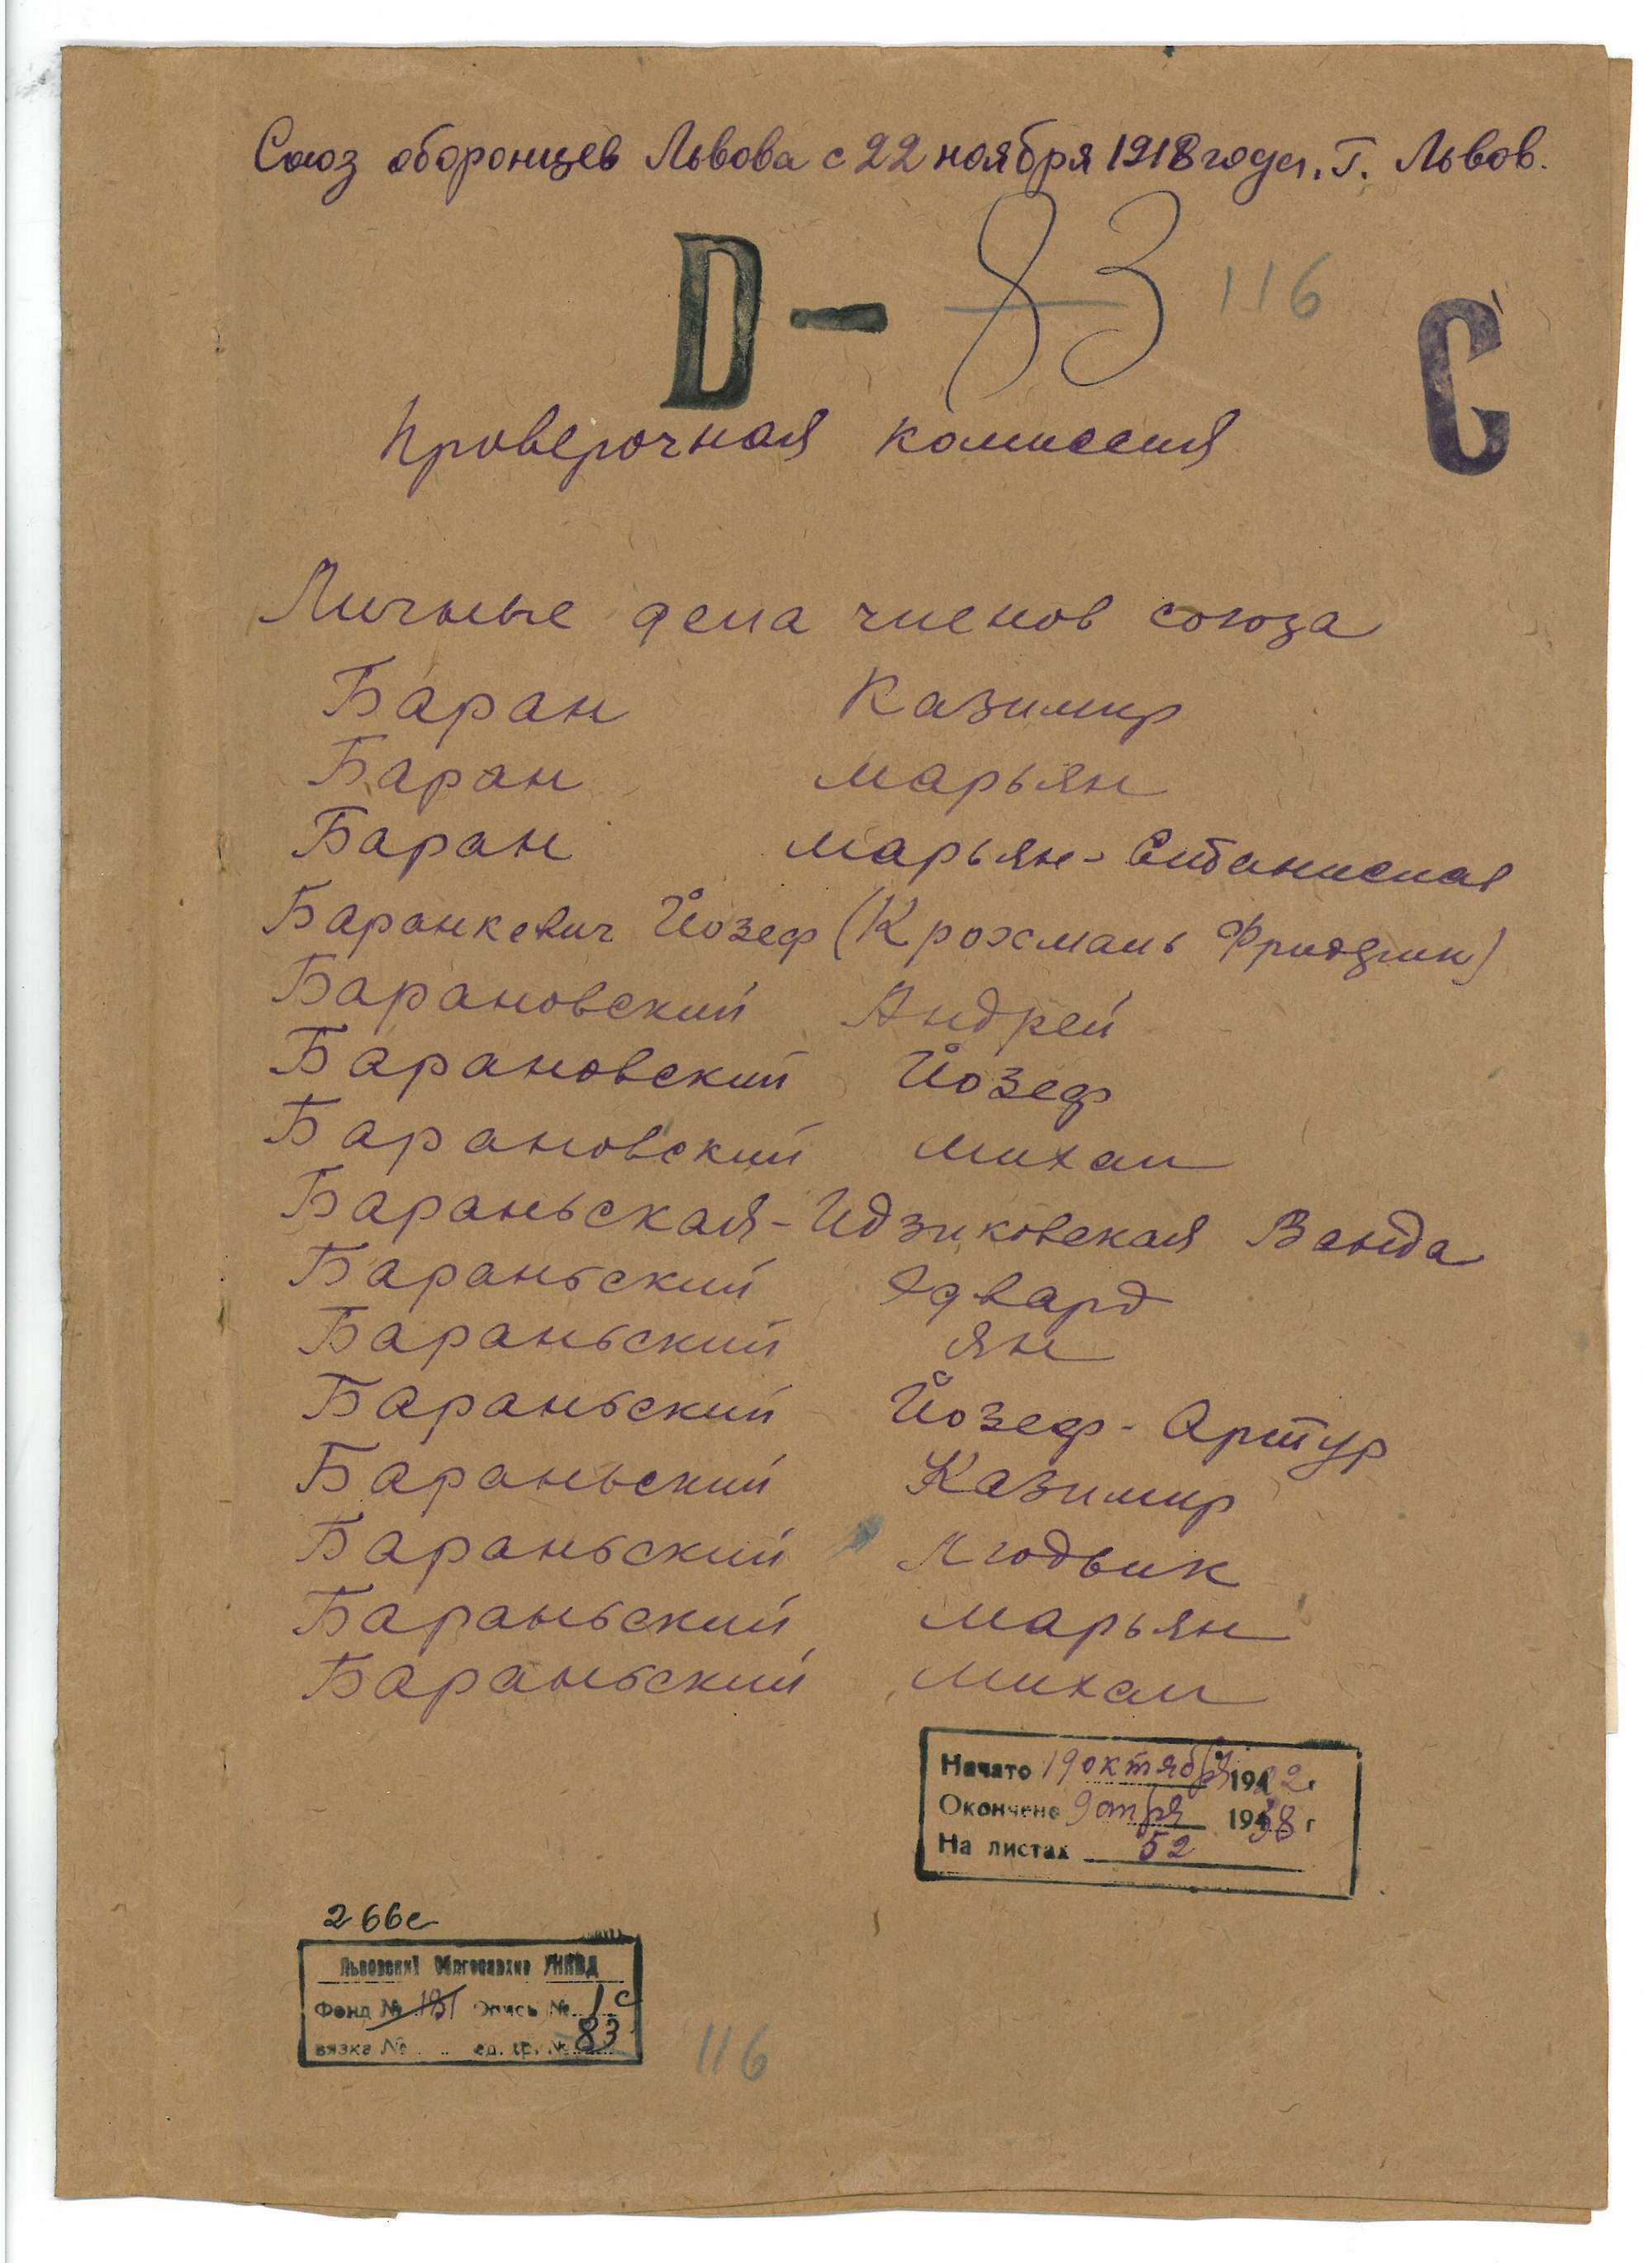 Союз оборонцев Львова с 22 ноября 1918 года. Г. Львов.
D – 83 116
С
Проверочная комиссия
Личные дела членов союза
Баран Казимир
Баран Марьян
Баран Марьян-Станислав
Баранкевич Йозеф (Крохмаль Фридрик)
Барановский Андрей
Барановский Йозеф
Барановский Михал
Бараньская-Идзиковская Ванда
Бараньский Эдвард
Бараньский Ян
Бараньский Йозеф-Артур
Бараньский Казимир
Бараньский Людвик
Бараньский Марьян
Бараньский Михал
Начато 19 октября 1922 г
Окончено 9 апр. 1938 г
На листах 52
266с
Львовский Облгосархив УНКВД
Фонд № Опись № 1с
вязка № ед. хр. № 83
116